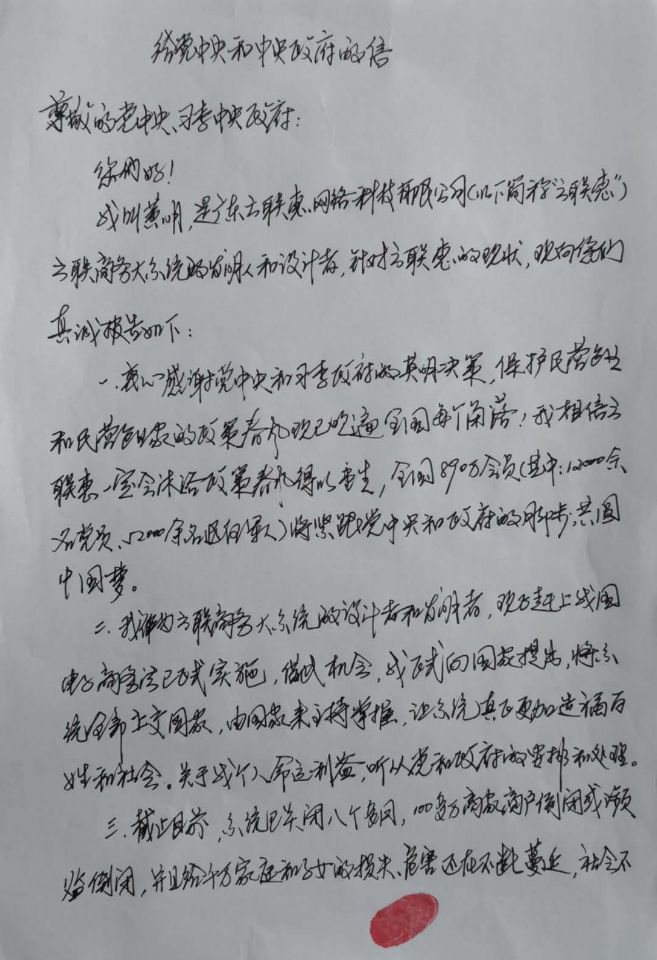 给党中央和中央政府的信
尊敬的党中央、习李中央政府：
你们好！
我叫黄明，是广东云联惠网络科技有限公司（以下简称“云联惠”）
云联商务大系统的发明人和设计者，针对云联惠的现状，现向你们
真诚报告如下：
一、衷心感谢党中央和习李政府的英明决策，保护民营企业
和民营企业家的政策春风现已吹遍全国每个角落！我相信云
联惠一定会沐浴政策春风得以重生，全国890万会员（其中：12000余
名党员、52000余名退伍军人）将紧跟党中央和政府的脚步，共圆
中国梦。
二、我作为云联商务大系统的设计者和发明者，现又赶上我国
电子商务法已正式实施，借此机会，我正式向国家提出，将系
统全部上交国家，由国家来主持掌握，让系统真正更加造福百
姓和社会。关于我个人命运利益，听从党和政府的安排和处理。
三、截止目前，系统已关闭八个多月，100多万商家商户倒闭或濒
临倒闭，并且给千万家庭和子女的损失、危害还在不断蔓延，社会不